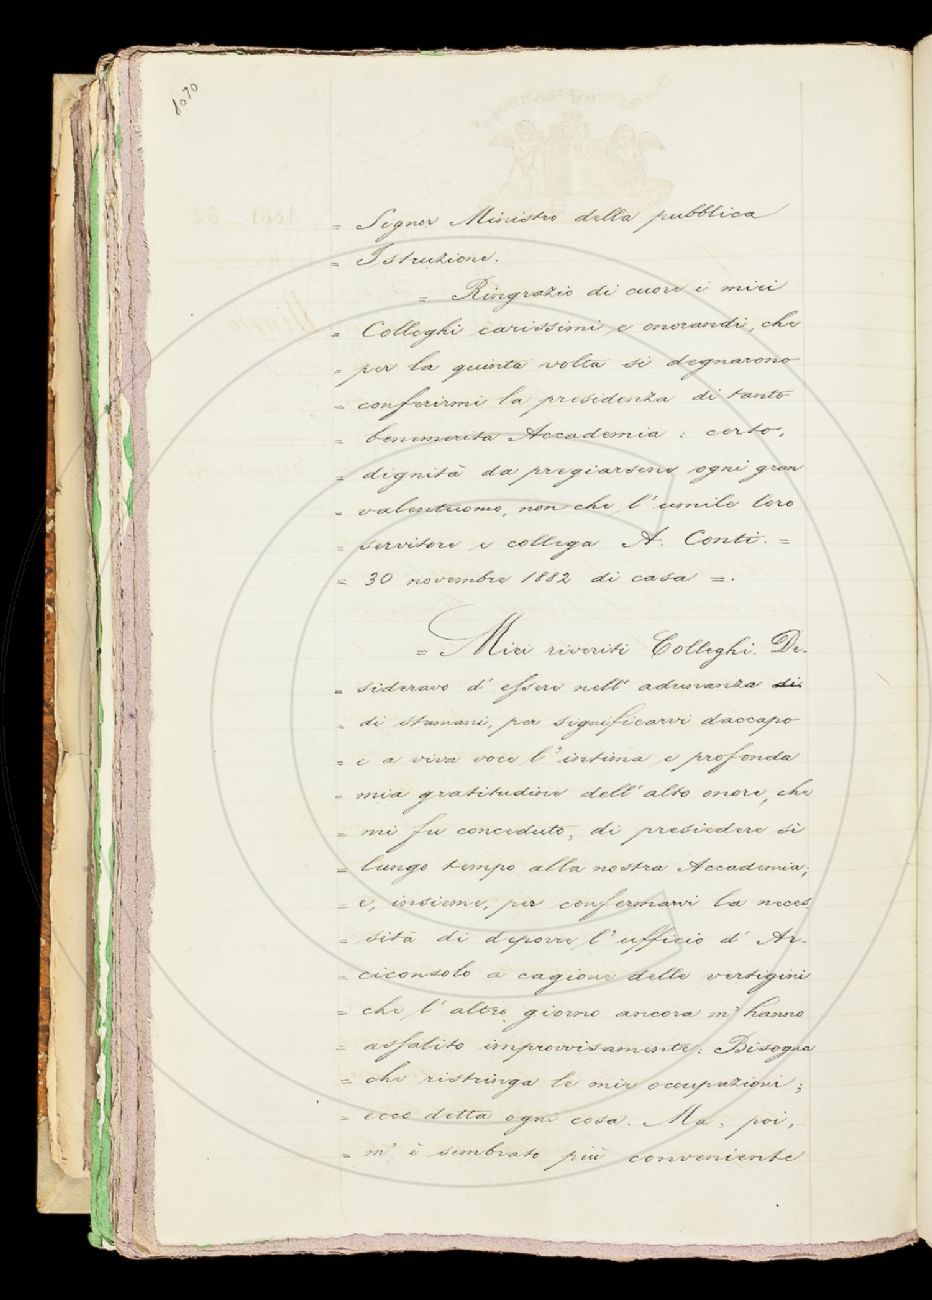 1070
= Signor Ministro della pubblica
= Istruzione.
= Ringrazio di cuore i miei
= Colleghi carissimi e onorandi, che
= per la quinta volta si degnarono
= conferirmi la presidenza di tanto
= benemerita Accademia: certo,
= dignità da pregiarsene ogni gran
= valentuomo, non che l'umile loro
= servitore e collega A. Conti. =
= 30 novembre 1882 di casa =.
= Miei riveriti Colleghi. De-
= sideravo d'essere nell'adunanza di
= di stamani, per significarvi daccapo
= e a viva voce l'intima e profonda
= mia gratitudine dell'alto onore, che
= mi fu conceduto, di presiedere sì
= lungo tempo alla nostra Accademia;
= e, insieme, per confermarvi la neces
= sità di deporre l'ufficio d'Ar-
= ciconsolo a cagione delle vertigini
= che l'altro giorno ancora m'hanno
= assalito improvvisamente: Bisogna
= che ristringa le mie occupazioni;
= ecco detta ogni cosa. Ma, poi,
= m'è sembrato più conveniente